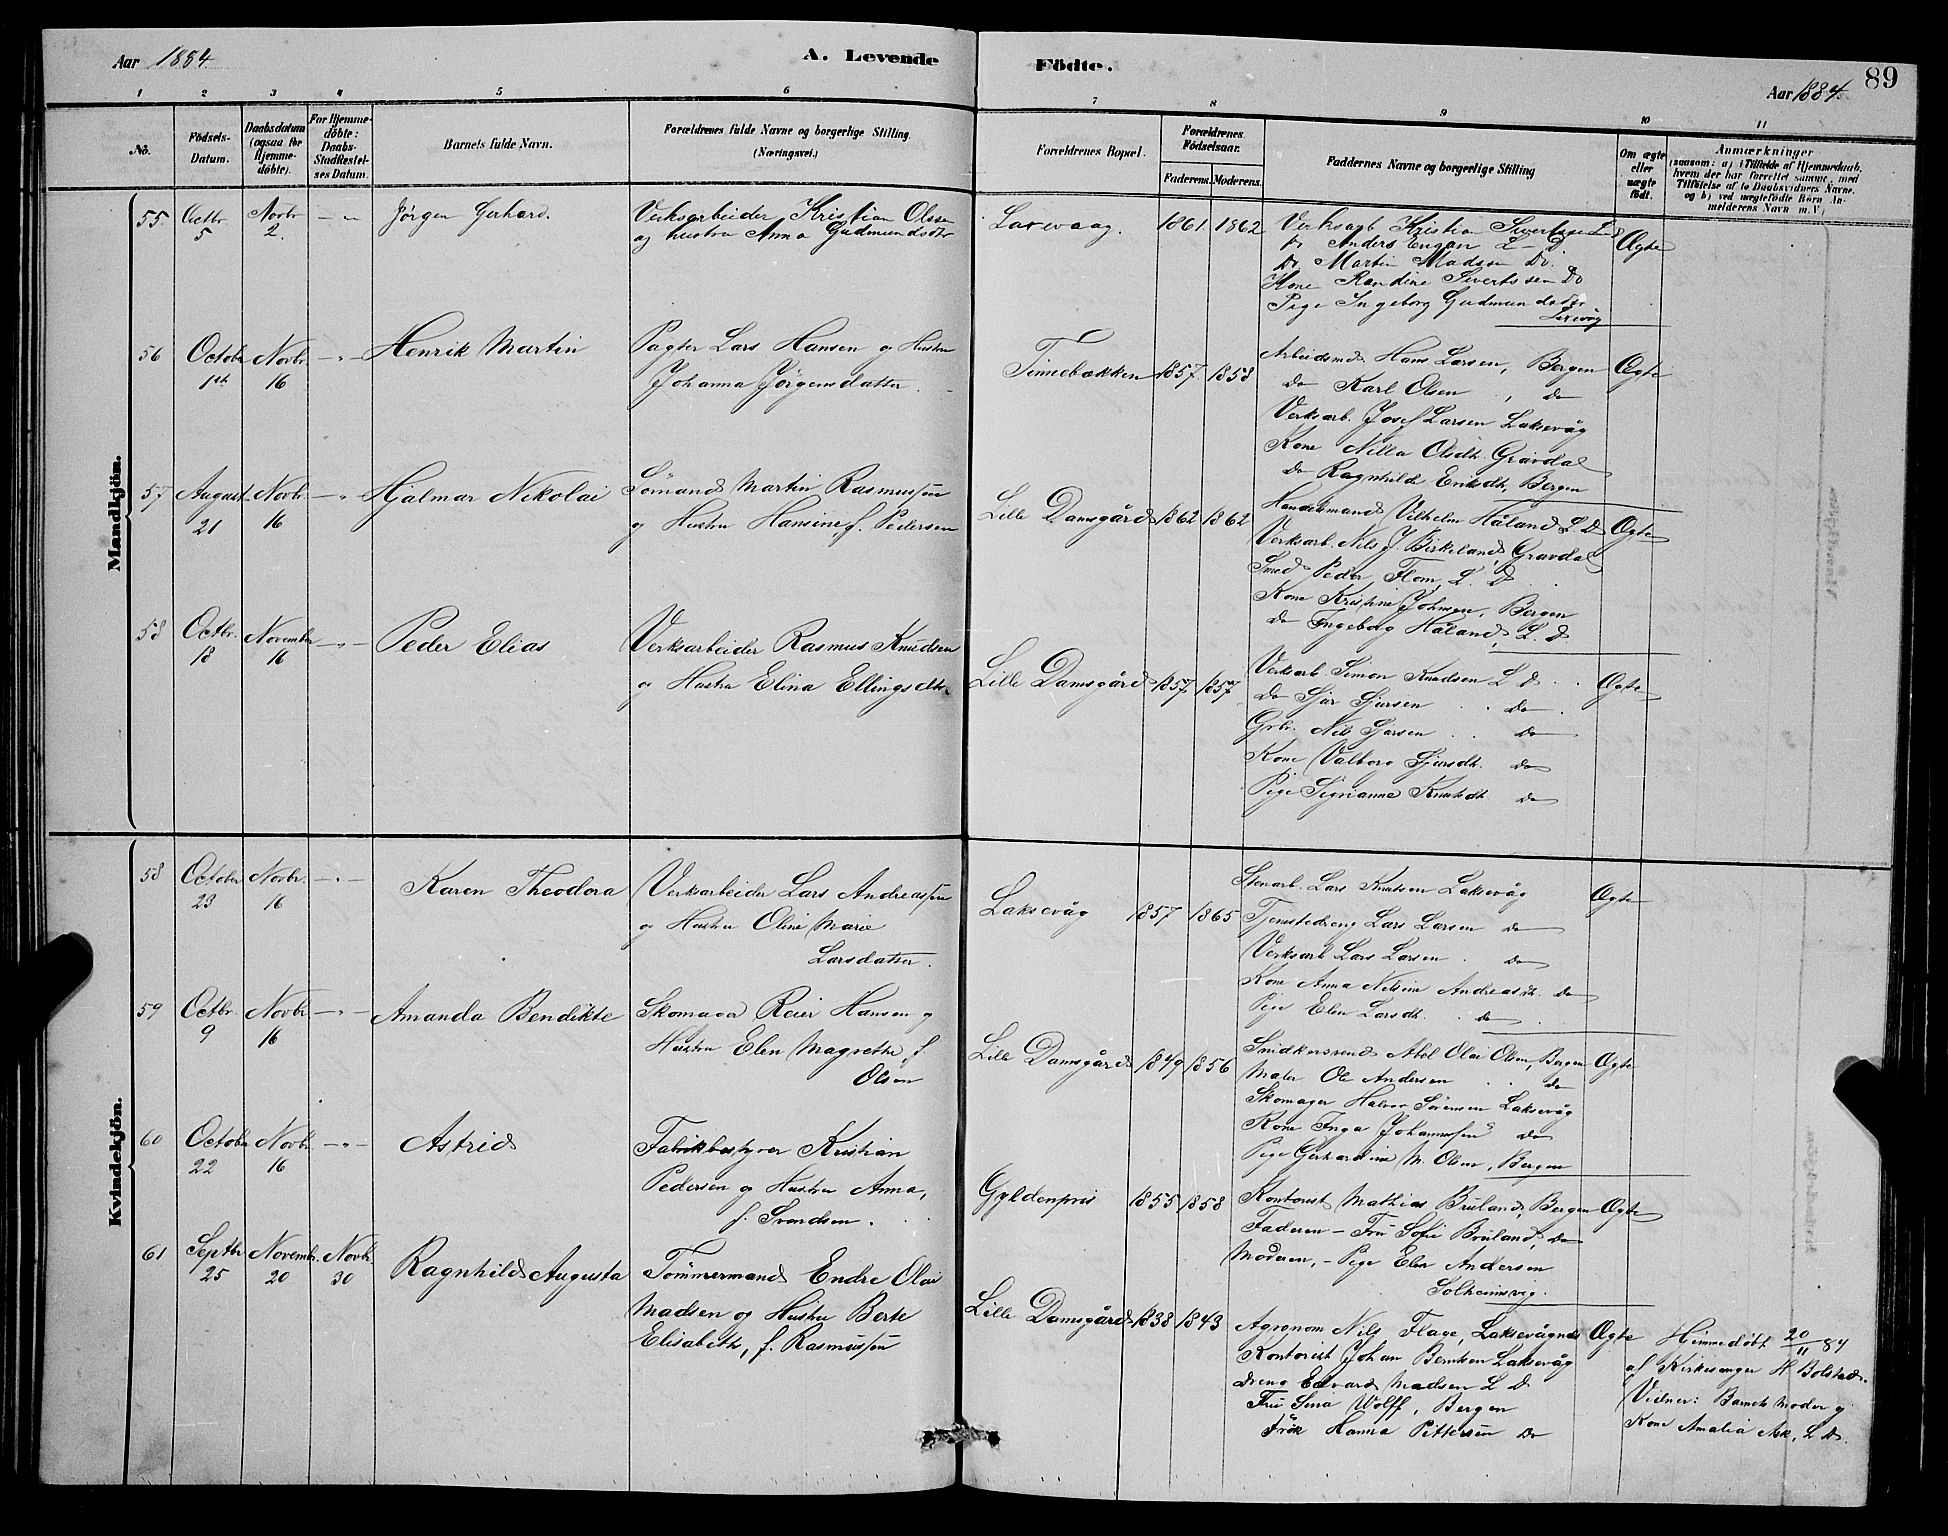 Aar 1884.
A. Levende
Födte.
Aar 1884.
89
1 2 3 4 5 6 7 8 9 10 11
No.
Födsels-
Datum.
Daabsdatum
(ogsaa for
Hjemme-
döbte).
For Hjemme-
döbte:
Daabs-
Stadfæstel-
ses Datum.
Barnets fulde Navn.
Forældrenes fulde Navne og borgerlige Stilling.
(Næringsvei.)
Forældrenes Bopæl.
Forældrenes
Födselsaar.
Faderens. Moderens.
Faddernes Navne og borgerlige Stilling
Om ægte
eller
uægte
födt.
Anmærkninger
(saasom: a) i Tilfælde af Hjemmedaab,
hvem der har forrettet samme, med
Tilföielse af to Daabsvidners Navne.
og b) ved uægtefödte Börn An-
melderens Navn m. V.)
Mandkjön.
55. Octbr. 5
Novbr 2.
Jørgen Gerhard.
Verksarbeider Kristian Olsen
og hustru Anna Gudmundsdtr
Laxevaag. 1861 1862
Verksarb Kristian Sivertsen L D
Do Anders Engan L - D
Do Martin Madsen Do.
Kone Randine Sivertssen Do
Pige Ingeborg Gudmundsdtr
Laxevåg
Ægte
56 Octobr 1ste
Novbr. 16
Henrik Martin
Pagter Lars Hansen og Hustru
Johanna Jörgensdatter.
Tinnebækken 1857 1858
Arbeidsmd. Hans Larsen, Bergen
do Karl Olsen, do
Verksarb. Josef Larsen Laksevåg
Kone Nilla Olsdtr. Gravdal
do Ragnhilde Eriksdtr, Bergen
Ægte
57 August. 21
Novbr. 16
Hjalmar Nikolai
Sömand Martin Rasmussen
og Hustru Hansine, f. Pedersen
Lille Damsgård 1862 1862
Handelsmand Vilhelm Håland L. D
Verksarb. Nils J. Birkeland, Gravdal
Smed Peder Flom, L. D
Kone Kristine Johnsen, Bergen
do Ingeborg Håland, L. D
Ægte
58 Octbr. 18
November 16
Peder Elias
Verksarbeider Rasmus Knudsen
og Hustru Elina Ellingsdtr
Lille Damsgård 1857 1857
Verksarb. Simon Knudsen L D
do Sjur Sjursen do
Grbr. Nils Sjursen do
Kone Valborg Sjursdtr. do
Pige Sigrianna Knutsdtr do
Ægte
Kvindekjön.
58 October 23
Novbr. 16
Karen Theodora
Verksarbeider Lars Andreassen
og Hustru Oline Marie
Larsdatter.
Laksevåg 1857 1865
Stenarb. Lars Knutsen Laksevåg
Tjenstedreng Lars Larsen do
Verksarb Lars Larsen do
Kone Anna Nilsine Andreasdtr. do
Pige Elen Larsdtr. do
Ægte
59 Octbr. 9
Novbr. 16
Amanda Bendikte
Skomager Reier Hansen og
Hustru Elen Magrethe f.
Olsen
Lille Damsgård 1849 1856
Snidkersvend Abel Olai Olsen, Bergen
Maler Ole Andersen do
Skomager Halvor Sörensen Laksevåg
Kone Inga Johannesen do
Pige Gerhardine M. Olsen, Bergen
Ægte
60 October 22
Novbr. 16
Astrid
Fabrikbestyrer Kristian
Pedersen og Hustru Anna,
f. Svendsen.
Gyldenpris 1855 1858
Kontorist Mathias Bruland, Bergen
Faderen - Fru Sofie Bruland, do
Moderen, - Pige Elen Andersen
Solheimsvig.
Ægte
61 Septbr 25
Novembr. 20
Novbr 30
Ragnhild Augusta
Tömmermand Endre Olai
Madsen og Hustru Berte
Elisabeth, f. Rasmussen
Lille Damsgård 1838 1843
Agronom Nils Flage, Laksevågnes
Kontorist Johan Berntsen Laksevåg
dreng Edvard Madsen L D
Fru Sina Wolff, Bergen
Frök Hanna Pettersen Do
Ægte
Hjemmedöbt 20/11 84
af Kirkesanger H Bolstad.
Vidner: Barnets Moder og
Kone Amalia Ask, L D.